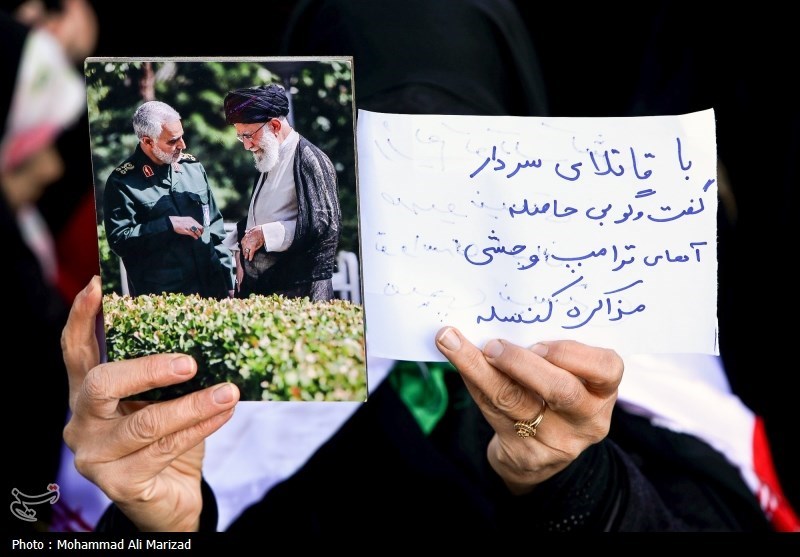 با قاتلای سردار
گفت وگو بی حاصله
آقای ترامپ وحشی
مذاکره کنسله
تسنیم
Photo : Mohammad Ali Marizad